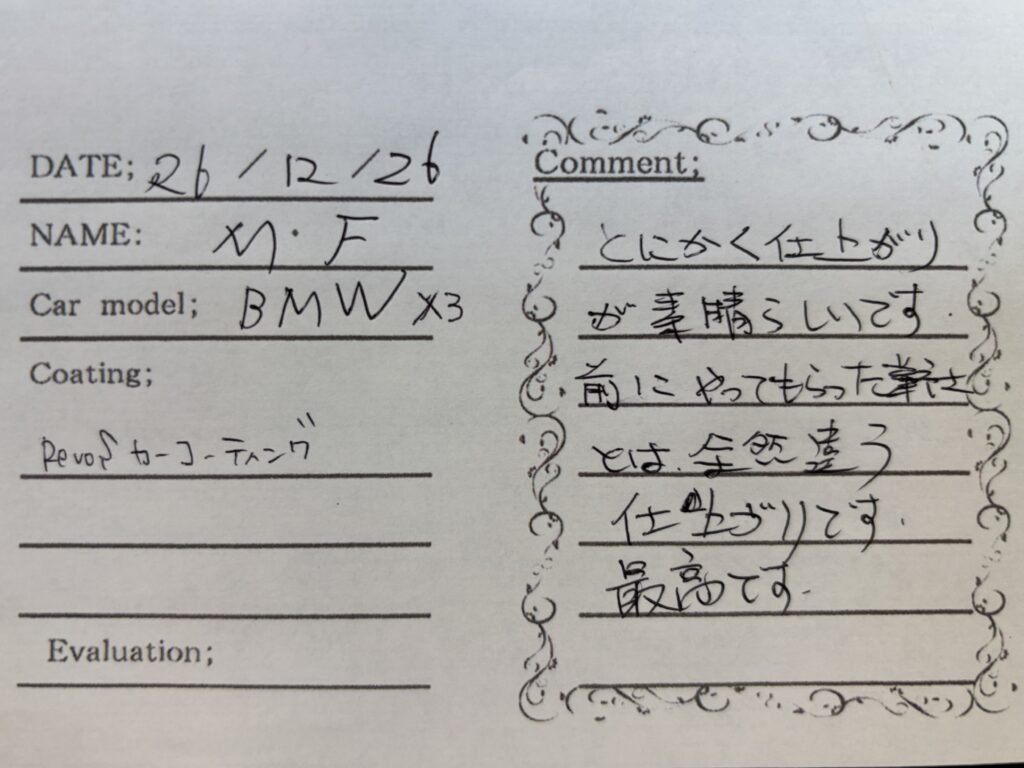 DATE; 26/12/26
NAME: M・F
Car model; BMW X3
Coating;
Revoltカーコーティング
Evaluation;
Comment;
とにかく仕上がり
が素晴らしいです.
前にやってもらった業者さん
とは、全然違う
仕上がりです.
最高です.